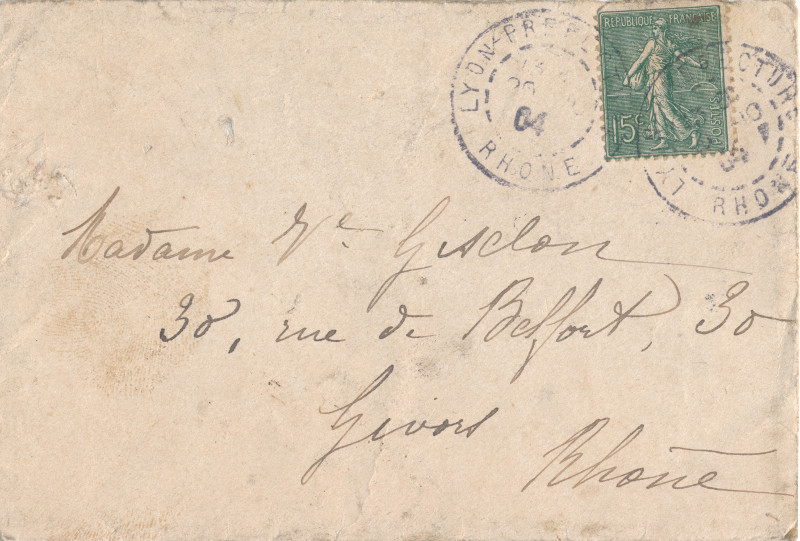 LYON-PRÉF
RHONE
04
REPUBLIQUE FRANÇAISE
15c
POSTES
CTURE
RHONE
LY
Madame Ve Gisclon
30, rue de Belfort, 30
Givors
Rhône